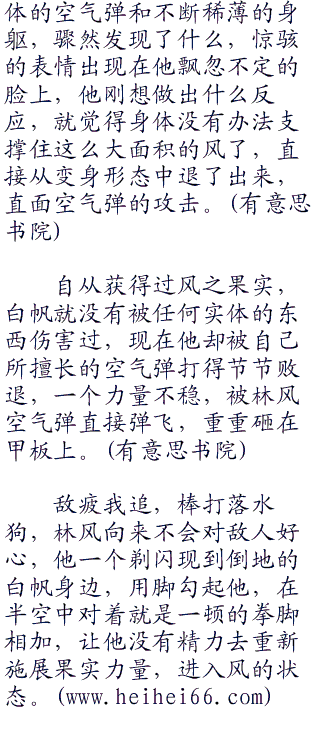 体的空气弹和不断稀薄的身
躯，骤然发现了什么，惊骇
的表情出现在他飘忽不定的
脸上，他刚想做出什么反
应，就觉得身体没有办法支
撑住这么大面积的风了，直
接从变身形态中退了出来，
直面空气弹的攻击。(有意思
书院)
自从获得过风之果实，
白帆就没有被任何实体的东
西伤害过，现在他却被自己
所擅长的空气弹打得节节败
退，一个力量不稳，被林风
空气弹直接弹飞，重重砸在
甲板上。(有意思书院)
敌疲我追，棒打落水
狗，林风向来不会对敌人好
心，他一个剃闪现到倒地的
白帆身边，用脚勾起他，在
半空中对着就是一顿的拳脚
相加，让他没有精力去重新
施展果实力量，进入风的状
态。(www.heihei66.com)